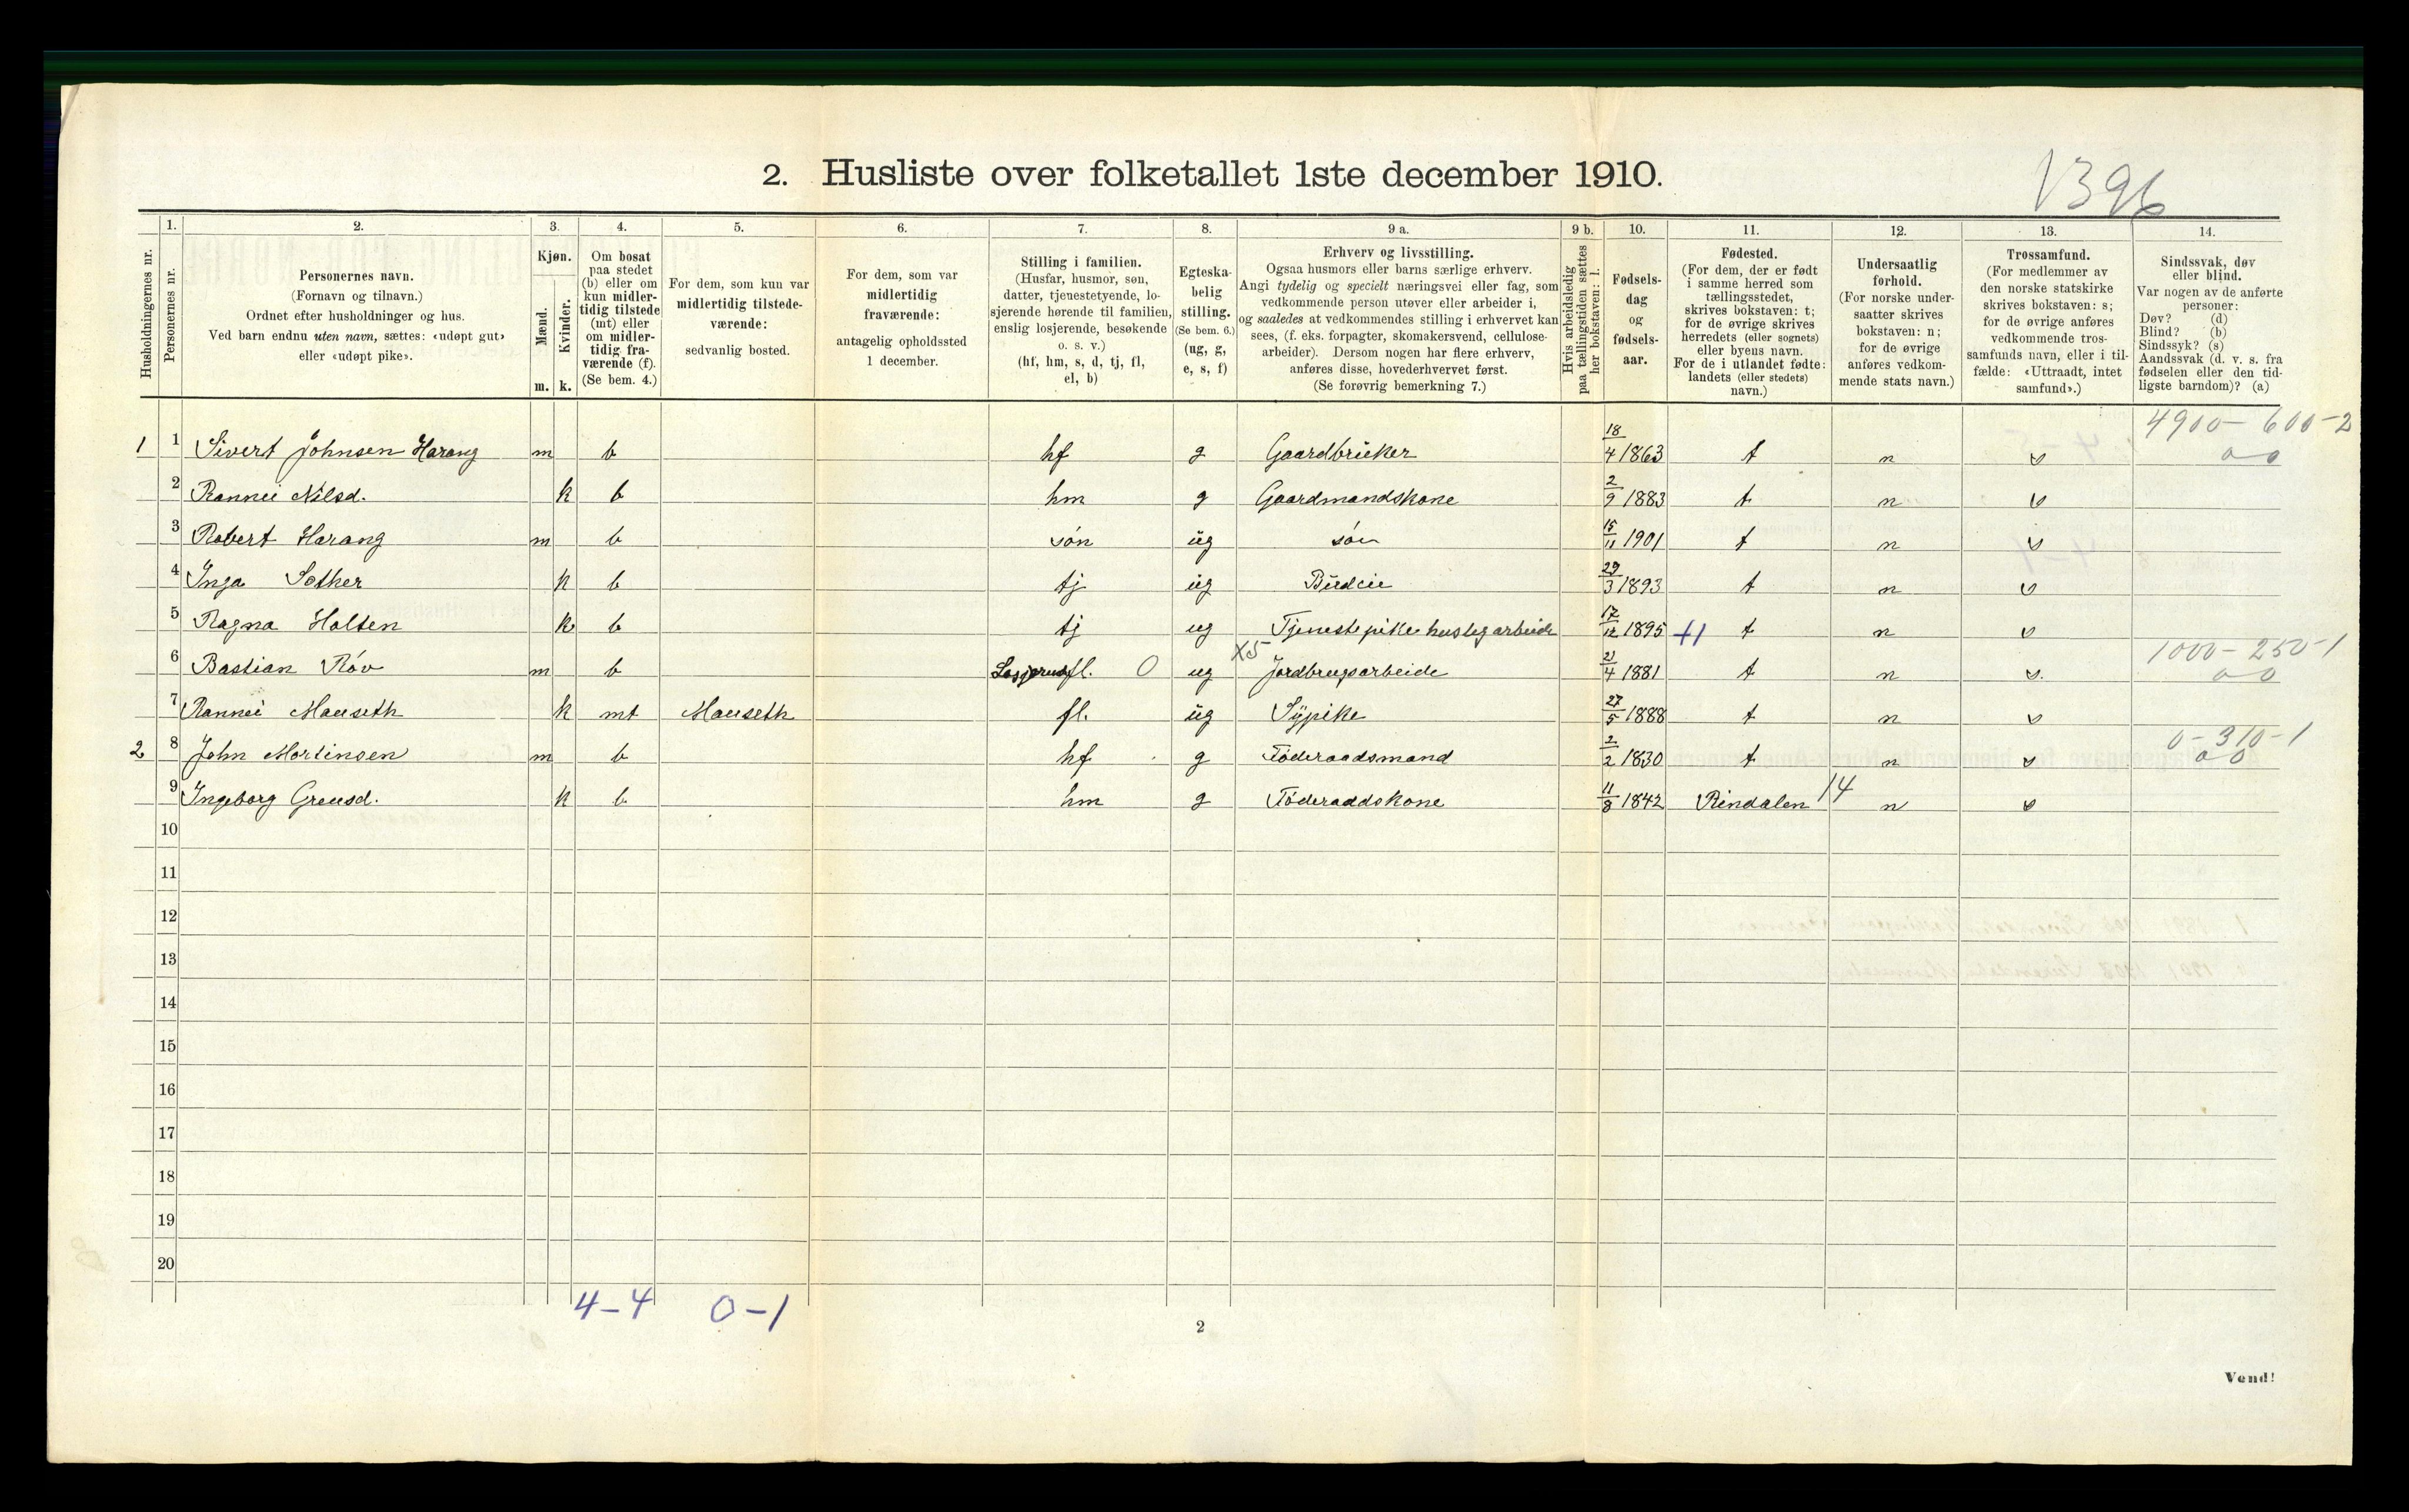 2. Husliste over folketallet 1ste december 1910.
1396
1. 2. 3. 4. 5. 6. 7. 8. 9 a. 9 b. 10. 11. 12. 13. 14.
Husholdningernes nr.
Personernes nr.
Personernes navn.
(Fornavn og tilnavn.)
Ordnet efter husholdninger og hus.
Ved barn endnu uten navn, sættes: «udøpt gut»
eller «udøpt pike».
Kjøn.
Mænd.
Kvinder.
m. k.
Om bosat
paa stedet
(b) eller om
kun midler-
tidig tilstede
(mt) eller
om midler-
tidig fra-
værende (f).
(Se bem. 4.)
For dem, som kun var
midlertidig tilstede-
værende:
sedvanlig bosted.
For dem, som var
midlertidig
fraværende:
antagelig opholdssted
1 december.
Stilling i familien.
(Husfar, husmor, søn,
datter, tjenestetyende, lo-
sjerende hørende til familien,
enslig losjerende, besøkende
o. s. v.)
(hf, hm, s, d, tj, fl,
el, b)
Egteska-
belig
stilling.
(Se bem. 6.)
(ug, g,
e, s, f)
Erhverv og livsstilling.
Ogsaa husmors eller barns særlige erhverv.
Angi tydelig og specielt næringsvei eller fag, som
vedkommende person utøver eller arbeider i,
og saaledes at vedkommendes stilling i erhvervet kan
sees, (f. eks. forpagter, skomakersvend, cellulose-
arbeider). Dersom nogen har flere erhverv,
anføres disse, hovederhvervet først.
(Se forøvrig bemerkning 7.)
Hvis arbeidsledig
paa tællingstiden sættes
her bokstaven: l.
Fødsels-
dag
og
fødsels-
aar.
Fødested.
(For dem, der er født
i samme herred som
tællingsstedet,
skrives bokstaven: t;
for de øvrige skrives
herredets (eller sognets)
eller byens navn.
For de i utlandet fødte:
landets (eller stedets)
navn.)
Undersaatlig
forhold.
(For norske under-
saatter skrives
bokstaven: n;
for de øvrige
anføres vedkom-
mende stats navn.)
Trossamfund.
(For medlemmer av
den norske statskirke
skrives bokstaven: s;
for de øvrige anføres
vedkommende tros-
samfunds navn, eller i til-
fælde: «Uttraadt, intet
samfund».)
Sindssvak, døv
eller blind.
Var nogen av de anførte
personer:
Døv? (d)
Blind? (b)
Sindssyk? (s)
Aandssvak (d. v. s. fra
fødselen eller den tid-
ligste barndom)? (a)
4900 - 600 - 2
1 1 Sivert Johnsen Harang m b hf g Gaardbruker 18/4 1863 t n s 0 0
2 Rannei Nilsd. k b hm g Gaardmandskone 2/9 1883 t n s
3 Robert Harang m b søn ug søn 15/11 1901 t n s
4 Inga Sother k b tj ug Budeie 29/3 1893 t n s
5 Ragna Holten k b tj ug Tjenestepike huslig arbeide 17/12 1895 +1 t n s
X5 1000 - 250 - 1
6 Bastian Røv m b Losjerend fl. 0 ug Jordbrugsarbeide 21/4 1881 t n s. 0 0
7 Rannei Mauseth k mt Mauseth fl. ug Sypike 27/5 1888 t n s
0 - 310 - 1
2 8 John Mortinsen m b hf g Föderaadsmand 2/2 1830 t n s 0 0
9 Ingeborg Greusd. k b hm g Föderaadskone 11/8 1842 Rindalen 14 n s
10
11
12
13
14
15
16
17
18
19
20
4-4 0-1
2
Vend!